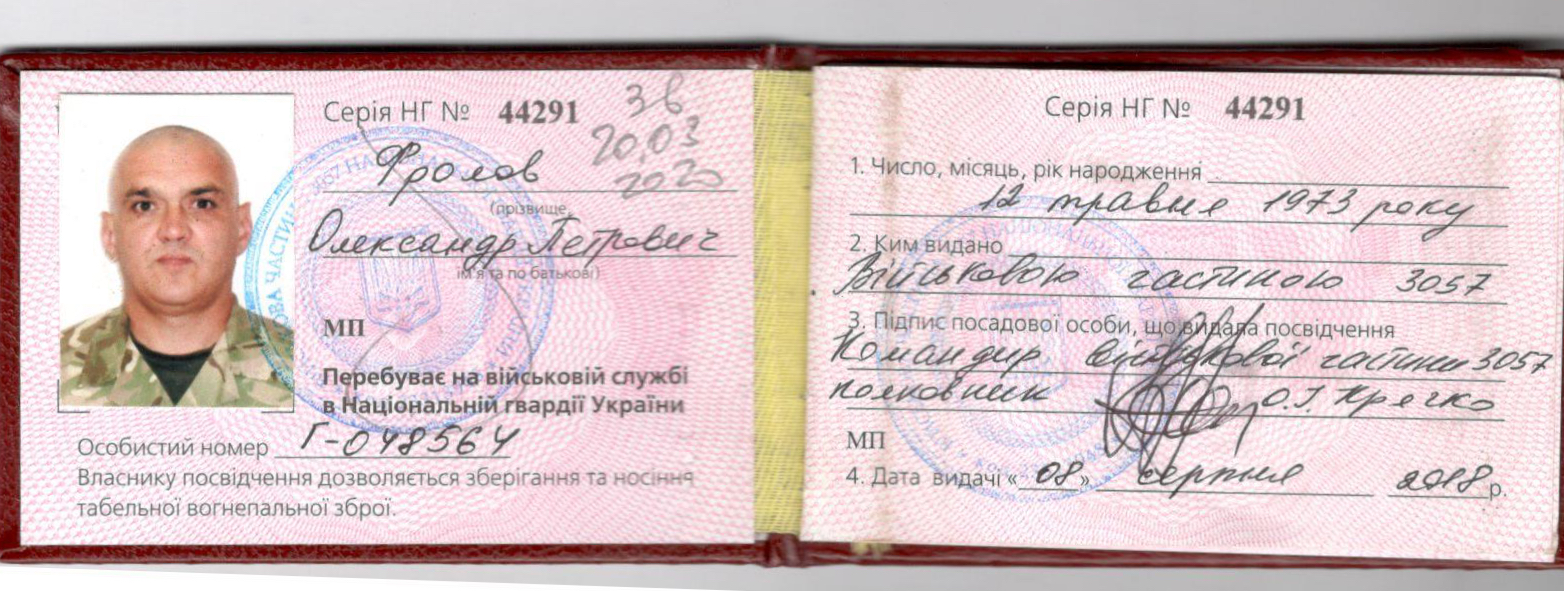 Серія НГ № 44291
Зв
20.03
2020
Фролов
(прізвище,
Олександр Петрович
ім'я та по батькові)
МП
Перебуває на військовій службі
в Національній гвардії України
Особистий номер Г-048564
Власнику посвідчення дозволяється зберігання та носіння
табельної вогнепальної зброї.
Серія НГ № 44291
1. Число, місяць, рік народження
12 травня 1973 року
2. Ким видано
Військовою частиною 3057
3. Підпис посадової особи, що видала посвідчення
Командир військової частини 3057
полковник О.І. Кречко
МП
4. Дата видачі «08» серпня 2018 р.